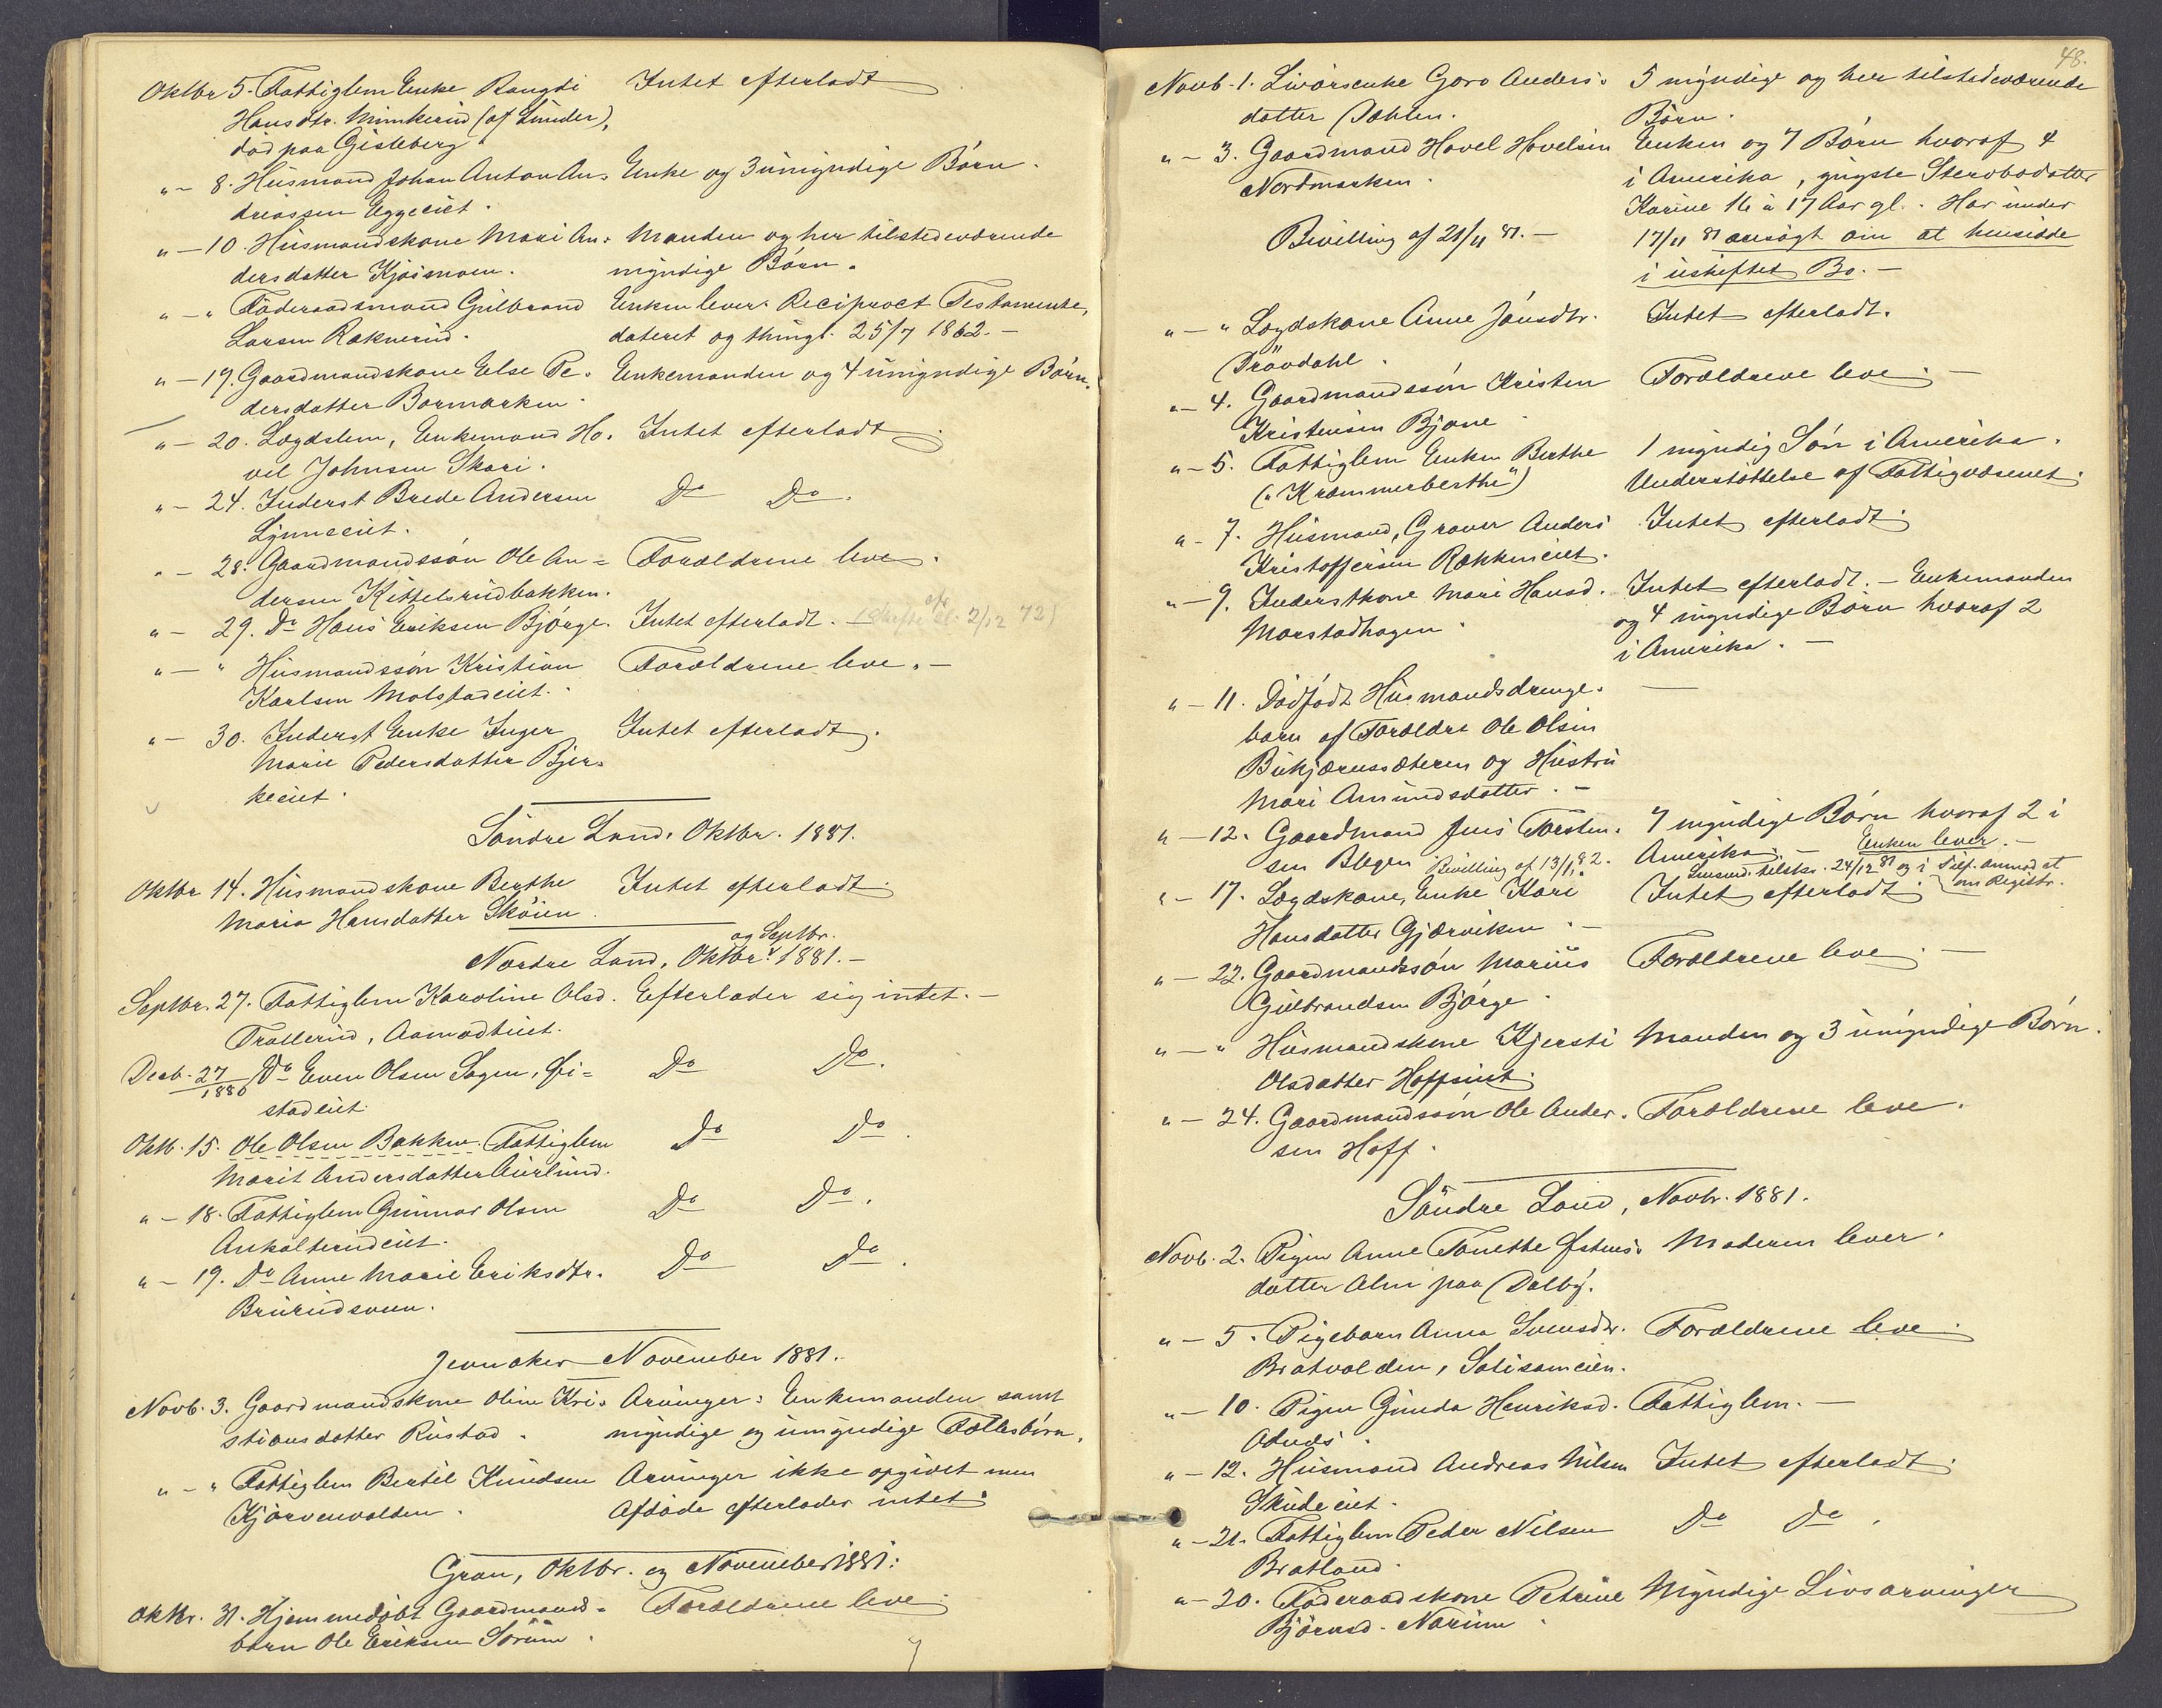 Oktbr 5. Fattiglem Enke Rangdi Intet efterladt
Hansdtr. Minkerud (af Lunder),
død paa Gisleberg.
" - 8. Husmand Johan Anton An= Enke og 3 umyndige Børn.
driassen Eggeeiet.
" - 10. Husmandskone Mari An= Manden og her tilstedeværende
dersdatter Kjøsmoen. myndige Børn.
" - " Föderaadsmand Gulbrand Enken lever. Reciproct Testamente,
Larsen Raknerud. dateret og thingl. 25/7 1862. -
" - 19. Gaardmandskone Else Pe= Enkemanden og 4 umyndige Børn.
dersdatter Bormarken.
" - 20. Lægdslem, Enkemand Ho= Intet efterladt.
vel Johnsen Skari.
" - 24. Inderst Brede Andersen Do Do.
Lynneeiet.
" - 28. Gaardmandssön Ole An= Forældrene leve.
dersen Kittelsrudbakken.
" - 29. Do Hans Eriksen Bjørge. Intet efterladt. 2/12 72)
" - " Husmandssön Kristian Forældrene leve. -
Karlsen Molstadeiet.
" - 30. Inderst Enke Inger Intet efterladt.
Marie Pedersdatter Bjer=
keeiet.
Söndre Land, Oktbr. 1881.
Oktbr 14. Husmandskone Berthe Intet efterladt.
Maria Hansdatter Skøien.
og Septbr.
Nordre Land, Oktbr. 1881. -
Septbr. 27. Fattiglem Karoline Olsd. Efterlader sig intet. -
Trollerud, Aamodteiet.
Decb. 27/1880 Do Even Olsen Sagen, Fi= Do Do.
stadeiet.
Oktb. 15. Ole Olsen Bakken. Fattiglem Do Do.
Marit Andersdatter Aurlund.
" - 18. Fattiglem Gunnar Olsen Do Do.
Ankalterudeiet.
" - 19. Do Anne Marie Eriksdtr. Do Do.
Brurudsveen.
Jevnaker November 1881.
Novb. 3. Gaardmandskone Oline Kri= Arvinger: Enkemanden samt
stiansdatter Rustad. myndige og umyndige Fællesbörn.
" - " Fattiglem Bertil Knudsen Arvinger ikke opgivet men
Kjørvenvolden. Afdøde efterlader intet.
Gran, Oktbr. og November 1881:
Oktbr. 31. Hjemmedøbt Gaardmands= Forældrene leve.
barn Ole Eriksen Sørum.
48.
Novb. 1. Livørsenke Goro Anders= 5 myndige og her tilstedeværende
datter Dæhlen. Börn.
" - 3. Gaardmand Hovel Hovelsen Enken og 7 Börn hvoraf 4
Nordmarken. i Amerika, yngste Stervbodatter
Karine 16 à 17 Aar gl. - Har under
Bevilling af 21/11 81. - 17/11 81 ansøgt om at hensidde
i uskiftet Bo. -
" - " Lægdskone Anne Jónsdtr. Intet efterladt.
Prøvdahl.
" - 4. Gaardmandssön Kristen Forældrene leve. -
Kristensen Bjone.
" - 5. Fattiglem Enken Berthe 1 myndig Sön i Amerika.
("Kræmmerberthe") Understöttelse af Fattigvæsenet.
" - 7. Husmand, Graver Anders Intet efterladt.
Kristoffersen Rækkeneiet.
" - 9. Inderstkone Mari Hansd. Intet efterladt. - Enkemanden
Morstadhagen. og 4 myndige Börn hvoraf 2
i Amerika. -
" - 11. Dödfödt Husmandsdrenge=
barn af Forældre Ole Olsen
Bukjærnssæteren og Hustru
Mari Amundsdatter. -
" - 12. Gaardmand Juus Torsten= 7 myndige Börn hvoraf 2 i
sen Blegen. Bevilling af 13/1 82. Amerika. - Enken lever. -
tilsk. 24/12 81 og i om Registr.
" - 17. Lægdskone, Enke Kari Intet efterladt.
Hansdatter Gjærviken. -
" - 22. Gaardmandssön Marius Forældrene leve. -
Gulbrandsen Bjørge.
" - " Husmandskone Kjersti Manden og 3 umyndige Börn.
Olsdatter Hoffseiet.
" - 24. Gaardmandssön Ole Ander= Forældrene leve.
sen Hoff.
Söndre Land, Novbr. 1881.
Novb. 2. Pigen Anne Tonette Østens= Moderen lever.
datter Alm paa Dalby.
" - 5. Pigebarn Anna Svensdtr. Forældrene leve.
Bratvolden, Solisameien.
" - 10. Pigen Gunda Henriksd. Fattiglem. -
Odnæs.
" - 12. Husmand Andreas Nilsen Intet efterladt.
Skudeeiet.
" - 21. Fattiglem Peder Nilsen Do Do.
Bratland.
" - 20. Föderaadskone Petrine Myndige Livsarvinger
Bjørnsd. Narum.